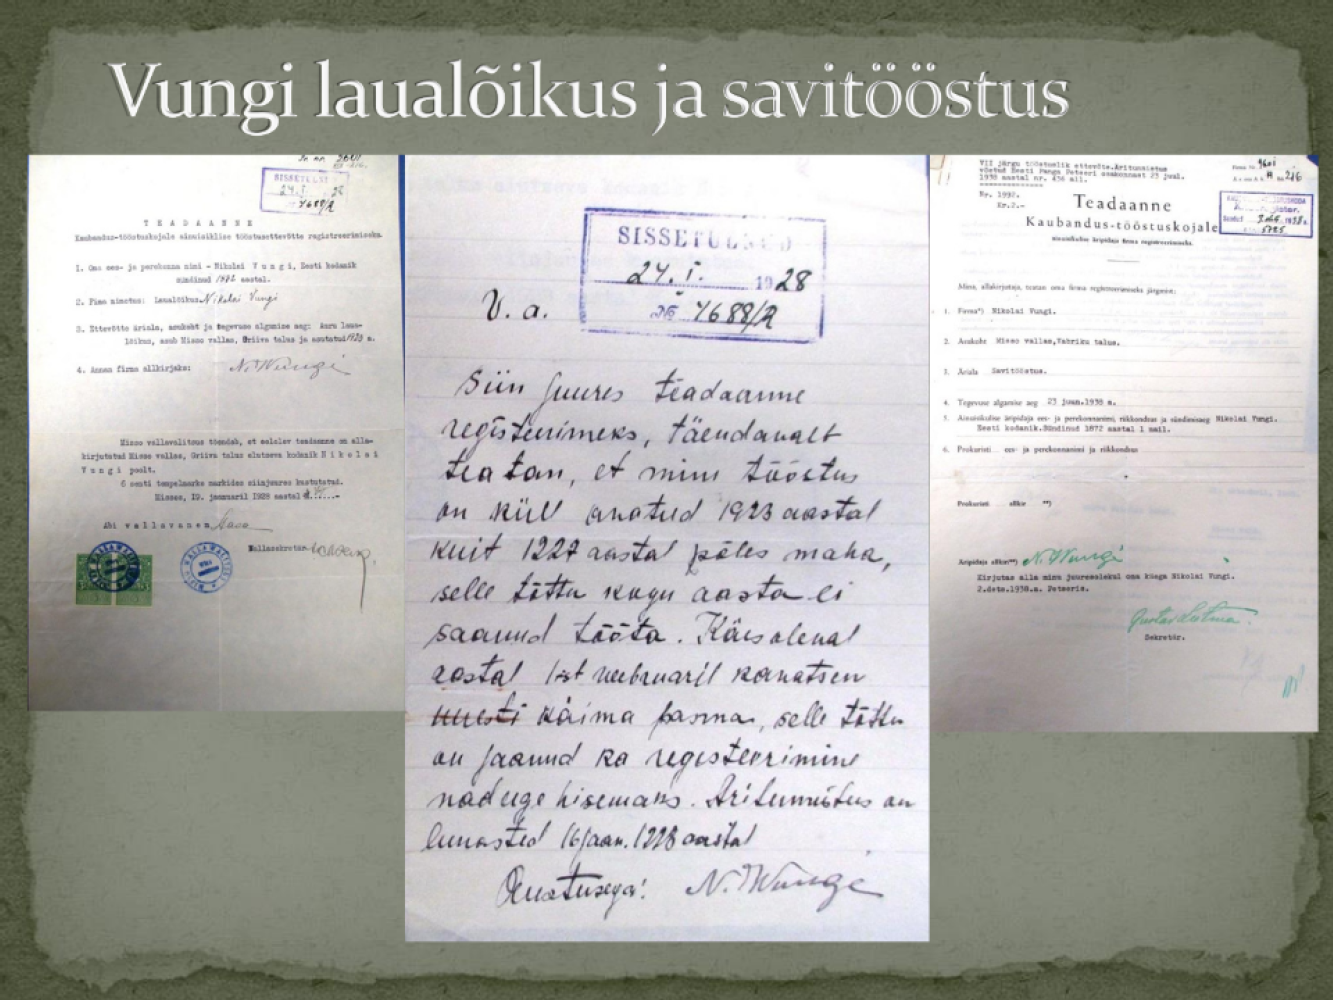 Vungi laualõikus ja savitööstus
SISSETULNUD
24. I. 28
7688/A
TEADAANNE
Kaubandus-tööstuskojale ainuisiklise tööstusettevõtte registreerimiseks.
1. Oma ees- ja perekonna nimi - Nikolai Vungi, Eesti kodanik
sündinud 1872 aastal.
2. Firma nimetus: Laualõikus Nikolai Vungi
3. Ettevõtte äriala, asukoht ja tegevuse algamise aeg: Auru laua-
lõikus, asub Misso vallas, Griiva talus ja asutatud 1923 a.
4. Annan firma allkirjaks: N. Wungi
Misso vallavalitsus tõendab, et eelolev teadaanne on alla-
kirjutatud Misso vallas, Griiva talus elutseva kodanik Nikolai
Vungi poolt.
6 senti tempelmarke markides siinjuures kustutatud.
Missos, 19. jaanuaril 1928 aastal
Abi vallavanem
Vallasekretär
SISSETULNUD
24. I. 1928
216 7688/A
V. a.
Siin juures teadaanne
registeerimeks, täendavalt
teatan, et minu tööstus
on küll avatud 1923 aastal
kuit 1227 aastal põles maha,
selle tõttu kogu aasta ei
saanud tööta. Käesoleval
aastal 1st veebruaril kavatsen
uuesti käima panna, selle tõttu
on jäänud ka registeerimine
naduge hisemaks. Äritunnistus on
lunasted 16 jaan. 1228 aastal
Austusega! N. Wungi
VII järgu tööstuslik ettevõte. Äritunnistus
võetud Eesti Panga Petseri osakonnast 23 juul.
1938 aastal nr. 436 all.
Nr. 1992.
Kr.2.-
Firma Nr. 9601
A 216
5725
Teadaanne
Kaubandus-tööstuskojale
ainuisikulise äripidaja firma registreerimiseks.
Mina, allakirjutaja, teatan oma firma registreerimiseks järgmist:
1. Firma*) Nikolai Vungi.
2. Asukoht Misso vallas, Vabriku talus.
3. Äriala Savitööstus.
4. Tegevuse algamise aeg 23 juun.1938 a.
5. Ainuisikulise äripidaja ees- ja perekonnanimi, riikkondsus ja sündimisaeg Nikolai Vungi.
Eesti kodanik. Sündinud 1872 aastal 1 mail.
6. Prokuristi ees- ja perekonnanimi ja riikkondsus
Prokuristi allkiri **)
Äripidaja allkiri**) N. Wungi
Kirjutas alla minu juuresolekul oma käega Nikolai Vungi.
2.dets.1938.a. Petseris.
Sekretär.